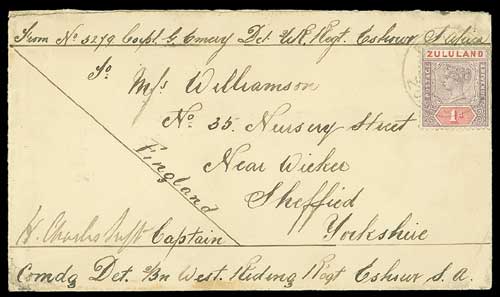 From No 5279 Corpl. G. Emery Det. W.R. Regt. Eshowe S. Africa
ZULULAND
POSTAGE
1d
To
Mrs Williamson
No 35 Nursery Street
Near Wicker
Sheffied
Yorkshire
England
H. Charles Captain
Comdg Det. 2/Bn West. Riding Regt Eshowe S.A.